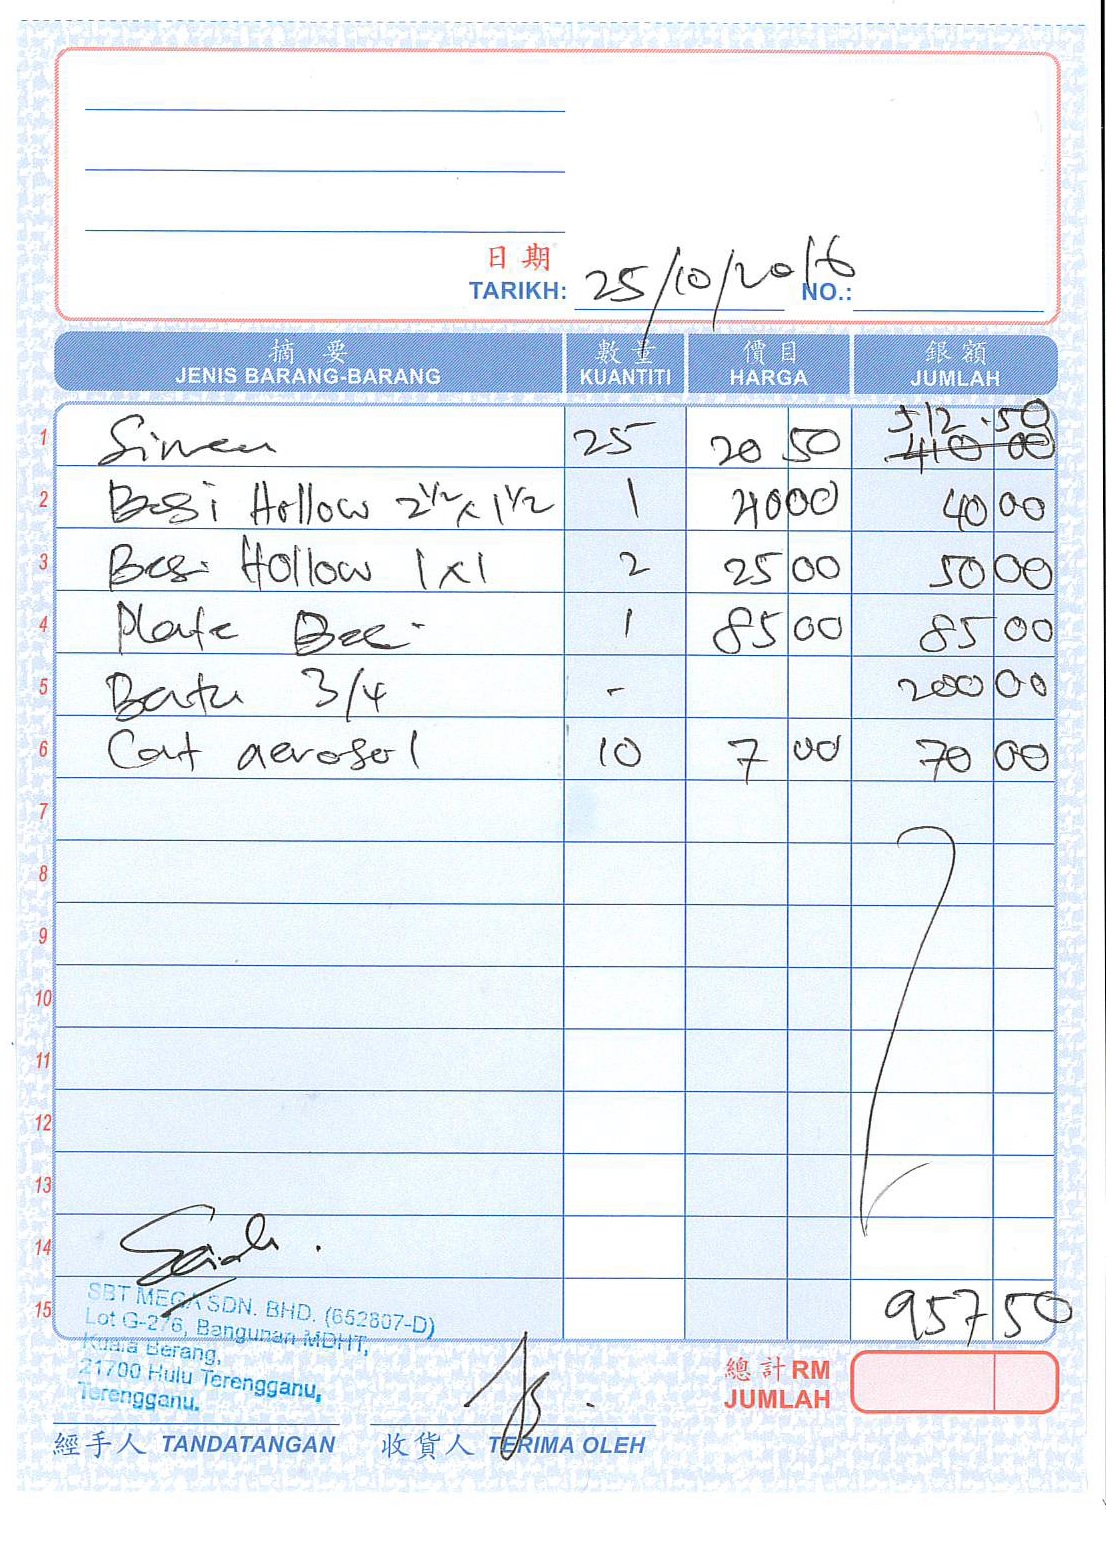 日期
TARIKH: 25/10/2016 NO.:
摘要 數量 價目 銀額
JENIS BARANG-BARANG KUANTITI HARGA JUMLAH
512.50
1 Simen 25 20 50 410 00
2 Besi Hollow 2½ x 1½ 1 40 00 40 00
3 Besi Hollow 1x1 2 25 00 50 00
4 Plate Besi 1 85 00 85 00
5 Batu 3/4 - 200 00
6 Cat aerosol 10 7 00 70 00
7
8
9
10
11
12
13
14
15 957 50
SBT MEGA SDN. BHD. (652807-D)
Lot G-276, Bangunan MDHT,
Kuala Berang,
21700 Hulu Terengganu,
Terengganu.
總計 RM
JUMLAH
經手人 TANDATANGAN 收貨人 TERIMA OLEH